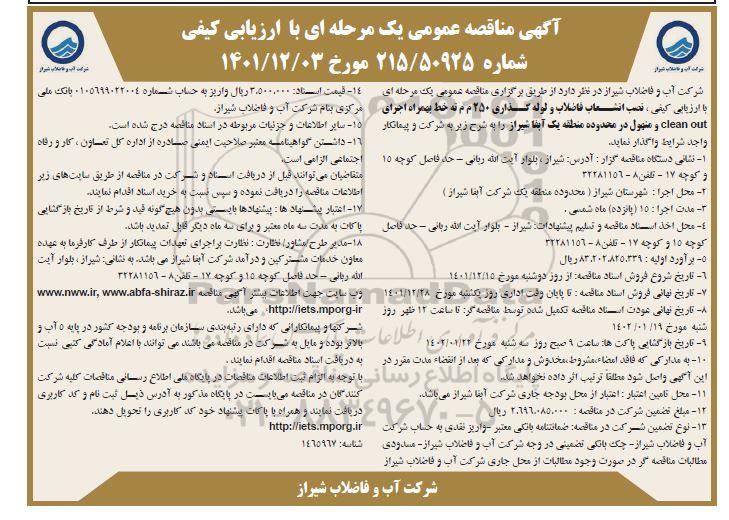 آگهی مناقصه عمومی یک مرحله ای با ارزیابی کیفی
شماره ۲۱۵/۵۰۹۲۵ مورخ ۱۴۰۱/۱۲/۰۳
شرکت آب و فاضلاب شیراز
شرکت آب و فاضلاب شیراز
شرکت آب و فاضلاب شیراز در نظر دارد از طریق برگزاری مناقصه عمومی یک مرحله ای
با ارزیابی کیفی ، نصب انشعاب فاضلاب و لوله گذاری ۲۵۰ م م ته خط بهمراه اجرای
clean out و منهول در محدوده منطقه یک آبفا شیراز را به شرح زیر به شرکت و پیمانکار
واجد شرایط واگذار نماید.
۱- نشانی دستگاه مناقصه گزار : آدرس: شیراز ، بلوار آیت الله ربانی – حد فاصل کوچه ۱۵
و کوچه ۱۷ - تلفن ۸ - ۳۲۲۸۱۱۵۶
۲- محل اجرا : شهرستان شیراز ( محدوده منطقه یک شرکت آبفا شیراز )
۳- مدت اجرا : ۱۵ (پانزده) ماه شمسی .
۴- محل اخذ اسناد مناقصه و تسلیم پیشنهادات: شیراز - بلوار آیت الله ربانی – حد فاصل
کوچه ۱۵ و کوچه ۱۷ - تلفن ۸ - ۳۲۲۸۱۱۵۶
۵- برآورد اولیه : ۸۳،۲۰۲،۸۲۵،۳۳۹ ریال
۶- تاریخ شروع فروش اسناد مناقصه: از روز دوشنبه مورخ ۱۴۰۱/۱۲/۱۵
۷- تاریخ نهائی فروش اسناد مناقصه : تا پایان وقت اداری روز یکشنبه مورخ ۱۴۰۱/۱۲/۲۸
۸- تاریخ نهائی عودت اسناد مناقصه تکمیل شده توسط مناقصه گر: تا ساعت ۱۲ ظهر روز
شنبه مورخ ۱۴۰۲/۰۱/۱۹
۹- تاریخ بازگشایی پاکت ها: ساعت ۹ صبح روز سه شنبه مورخ ۱۴۰۲/۰۱/۲۲
۱۰- به مدارکی که فاقد امضاء،مشروط،مخدوش و مدارکی که بعد از انقضاء مدت مقرر در
این آگهی واصل شود مطلقاً ترتیب اثر داده نخواهد شد.
۱۱- محل تامین اعتبار : اعتبار از محل بودجه جاری شرکت آبفا شیراز می‌باشد.
۱۲- مبلغ تضمین شرکت در مناقصه : ۲،۶۹۳،۰۸۵،۰۰۰ ریال
۱۳- نوع تضمین شرکت در مناقصه: ضمانتنامه بانکی معتبر –واریز نقدی به حساب شرکت
آب و فاضلاب شیراز- چک بانکی تضمینی در وجه شرکت آب و فاضلاب شیراز- مسدودی
مطالبات مناقصه گر در صورت وجود مطالبات از محل جاری شرکت آب و فاضلاب شیراز
۱۴- قیمت اسناد: ۳،۵۰۰،۰۰۰ ریال واریز به حساب شماره ۰۱۰۵۶۹۹۰۲۲۰۰۴ بانک ملی
مرکزی بنام شرکت آب و فاضلاب شیراز.
۱۵- سایر اطلاعات و جزئیات مربوطه در اسناد مناقصه درج شده است.
۱۶- داشتن گواهینامه معتبر صلاحیت ایمنی صادره از اداره کل تعاون ، کار و رفاه
اجتماعی الزامی است.
متقاضیان می‌توانند قبل از دریافت اسناد و شرکت در مناقصه از طریق سایت‌های زیر
اطلاعات مناقصه را دریافت نموده و سپس نسبت به خرید اسناد اقدام نمایند.
۱۷- اعتبار پیشنهاد ها : پیشنهادها بایستی بدون هیچ‌گونه قید و شرط از تاریخ بازگشایی
پاکات به مدت سه ماه معتبر و برای سه ماه دیگر قابل تمدید باشد.
۱۸-مدیر طرح/مشاور/نظارت : نظارت براجرای تعهدات پیمانکار از طرف کارفرما به عهده
معاون خدمات مشترکین و درآمد شرکت آبفا شیراز می باشد. به نشانی: شیراز ، بلوار آیت
الله ربانی – حد فاصل کوچه ۱۵ و کوچه ۱۷ - تلفن ۸ - ۳۲۲۸۱۱۵۶
وب سایت جهت اطلاعات بیشتر آگهی مناقصه www.nww.ir, www.abfa-shiraz.ir
http://iets.mporg-ir می‌باشد.
شرکتها و پیمانکارانی که دارای رتبه‌بندی سازمان برنامه و بودجه کشور در پایه ۵ آب و
بالاتر بوده و مایل به شرکت در مناقصه می باشند می توانند با اعلام آمادگی کتبی نسبت
به دریافت اسناد مناقصه اقدام نمایند .
با توجه به الزام ثبت اطلاعات مناقصات در پایگاه ملی اطلاع رسانی مناقصات کلیه شرکت
کنندگان در مناقصه می‌بایست در پایگاه مذکور به آدرس ذیل ثبت نام و کد کاربری
دریافت نمایند و همراه با پاکات پیشنهاد خود کد کاربری را تحویل دهند.
http://iets.mporg-ir
شناسه: ۱۴۶۵۹۶۷
شرکت آب و فاضلاب شیراز
ParsNamadData
۰۲۱-۸۸۳۴۹۶۷۰-۵